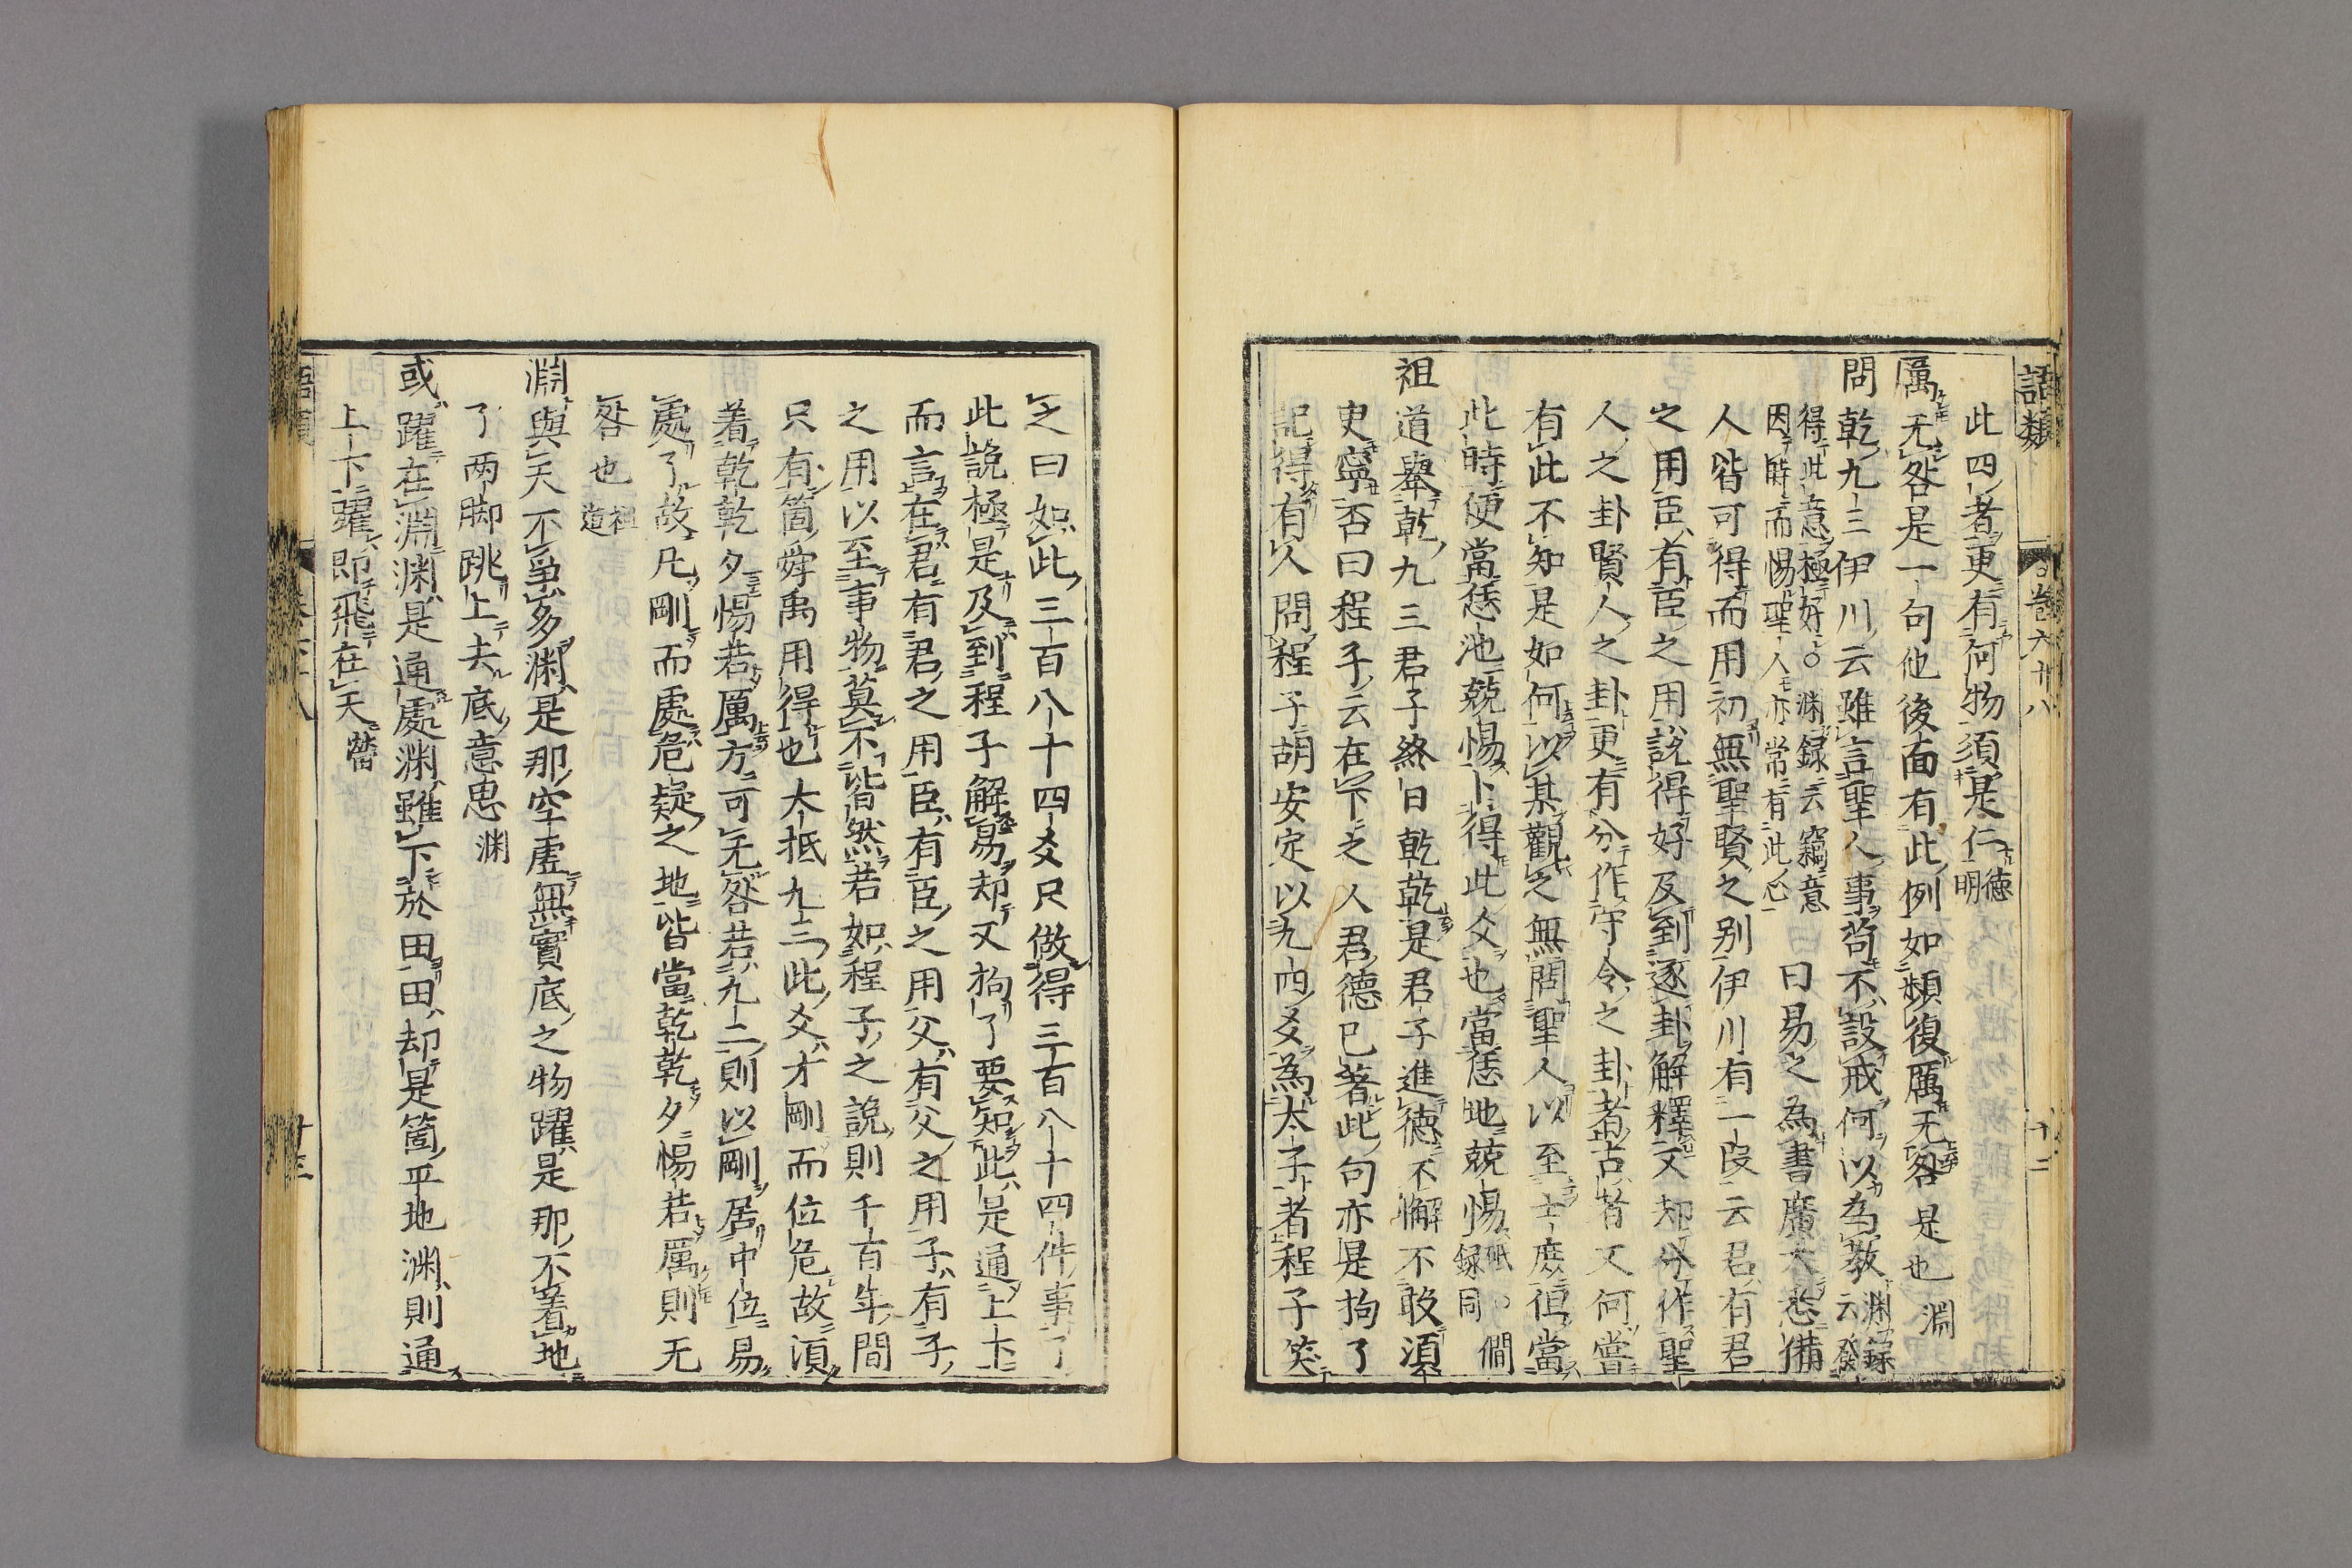 語類 卷六十八 十二
此四者更有何物須是仁 德明
厲无咎是一句他後面有此例如頻復厲无咎是也 淵
問乾九三伊川云雖言聖人事苟不設戒何以為教 淵錄云發
得此意極好○淵録云竊意
因時而惕聖人亦常有此心 曰易之為書廣大悉備
人皆可得而用初無聖賢之别伊川有一段云君有君
之用臣有臣之用說得好及到逐卦解釋又却分作聖
人之卦賢人之卦更有分作守令之卦者古者又何嘗
有此不知是如何以某觀之無問聖人以至士庶但當
此時便當恁地兢惕卜得此爻也當恁地兢惕 砥録同 僩
祖道舉乾九三君子終日乾乾是君子進德不懈不敢須
臾寧否曰程子云在下之人君德已著此句亦是拘了
記得有人問程子胡安定以九四爻為太子者程子笑
之曰如此三百八十四爻只做得三百八十四件事了
此說極是及到程子解易却又拘了要知此是通上下
而言在君有君之用臣有臣之用父有父之用子有子
之用以至事物莫不皆然若如程子之說則千百年間
只有箇舜禹用得也大抵九三此爻才剛而位危故須
着乾乾夕惕若厲方可无咎若九二則以剛居中位易
處了故凡剛而處危疑之地皆當乾乾夕惕若厲則无
咎也 祖道
淵與天不爭多淵是那空虛無實底之物躍是那不着地
了兩脚跳上去底意思 淵
或躍在淵淵是通處淵雖下於田田却是箇平地淵則通
上下躍即飛在天 䕫